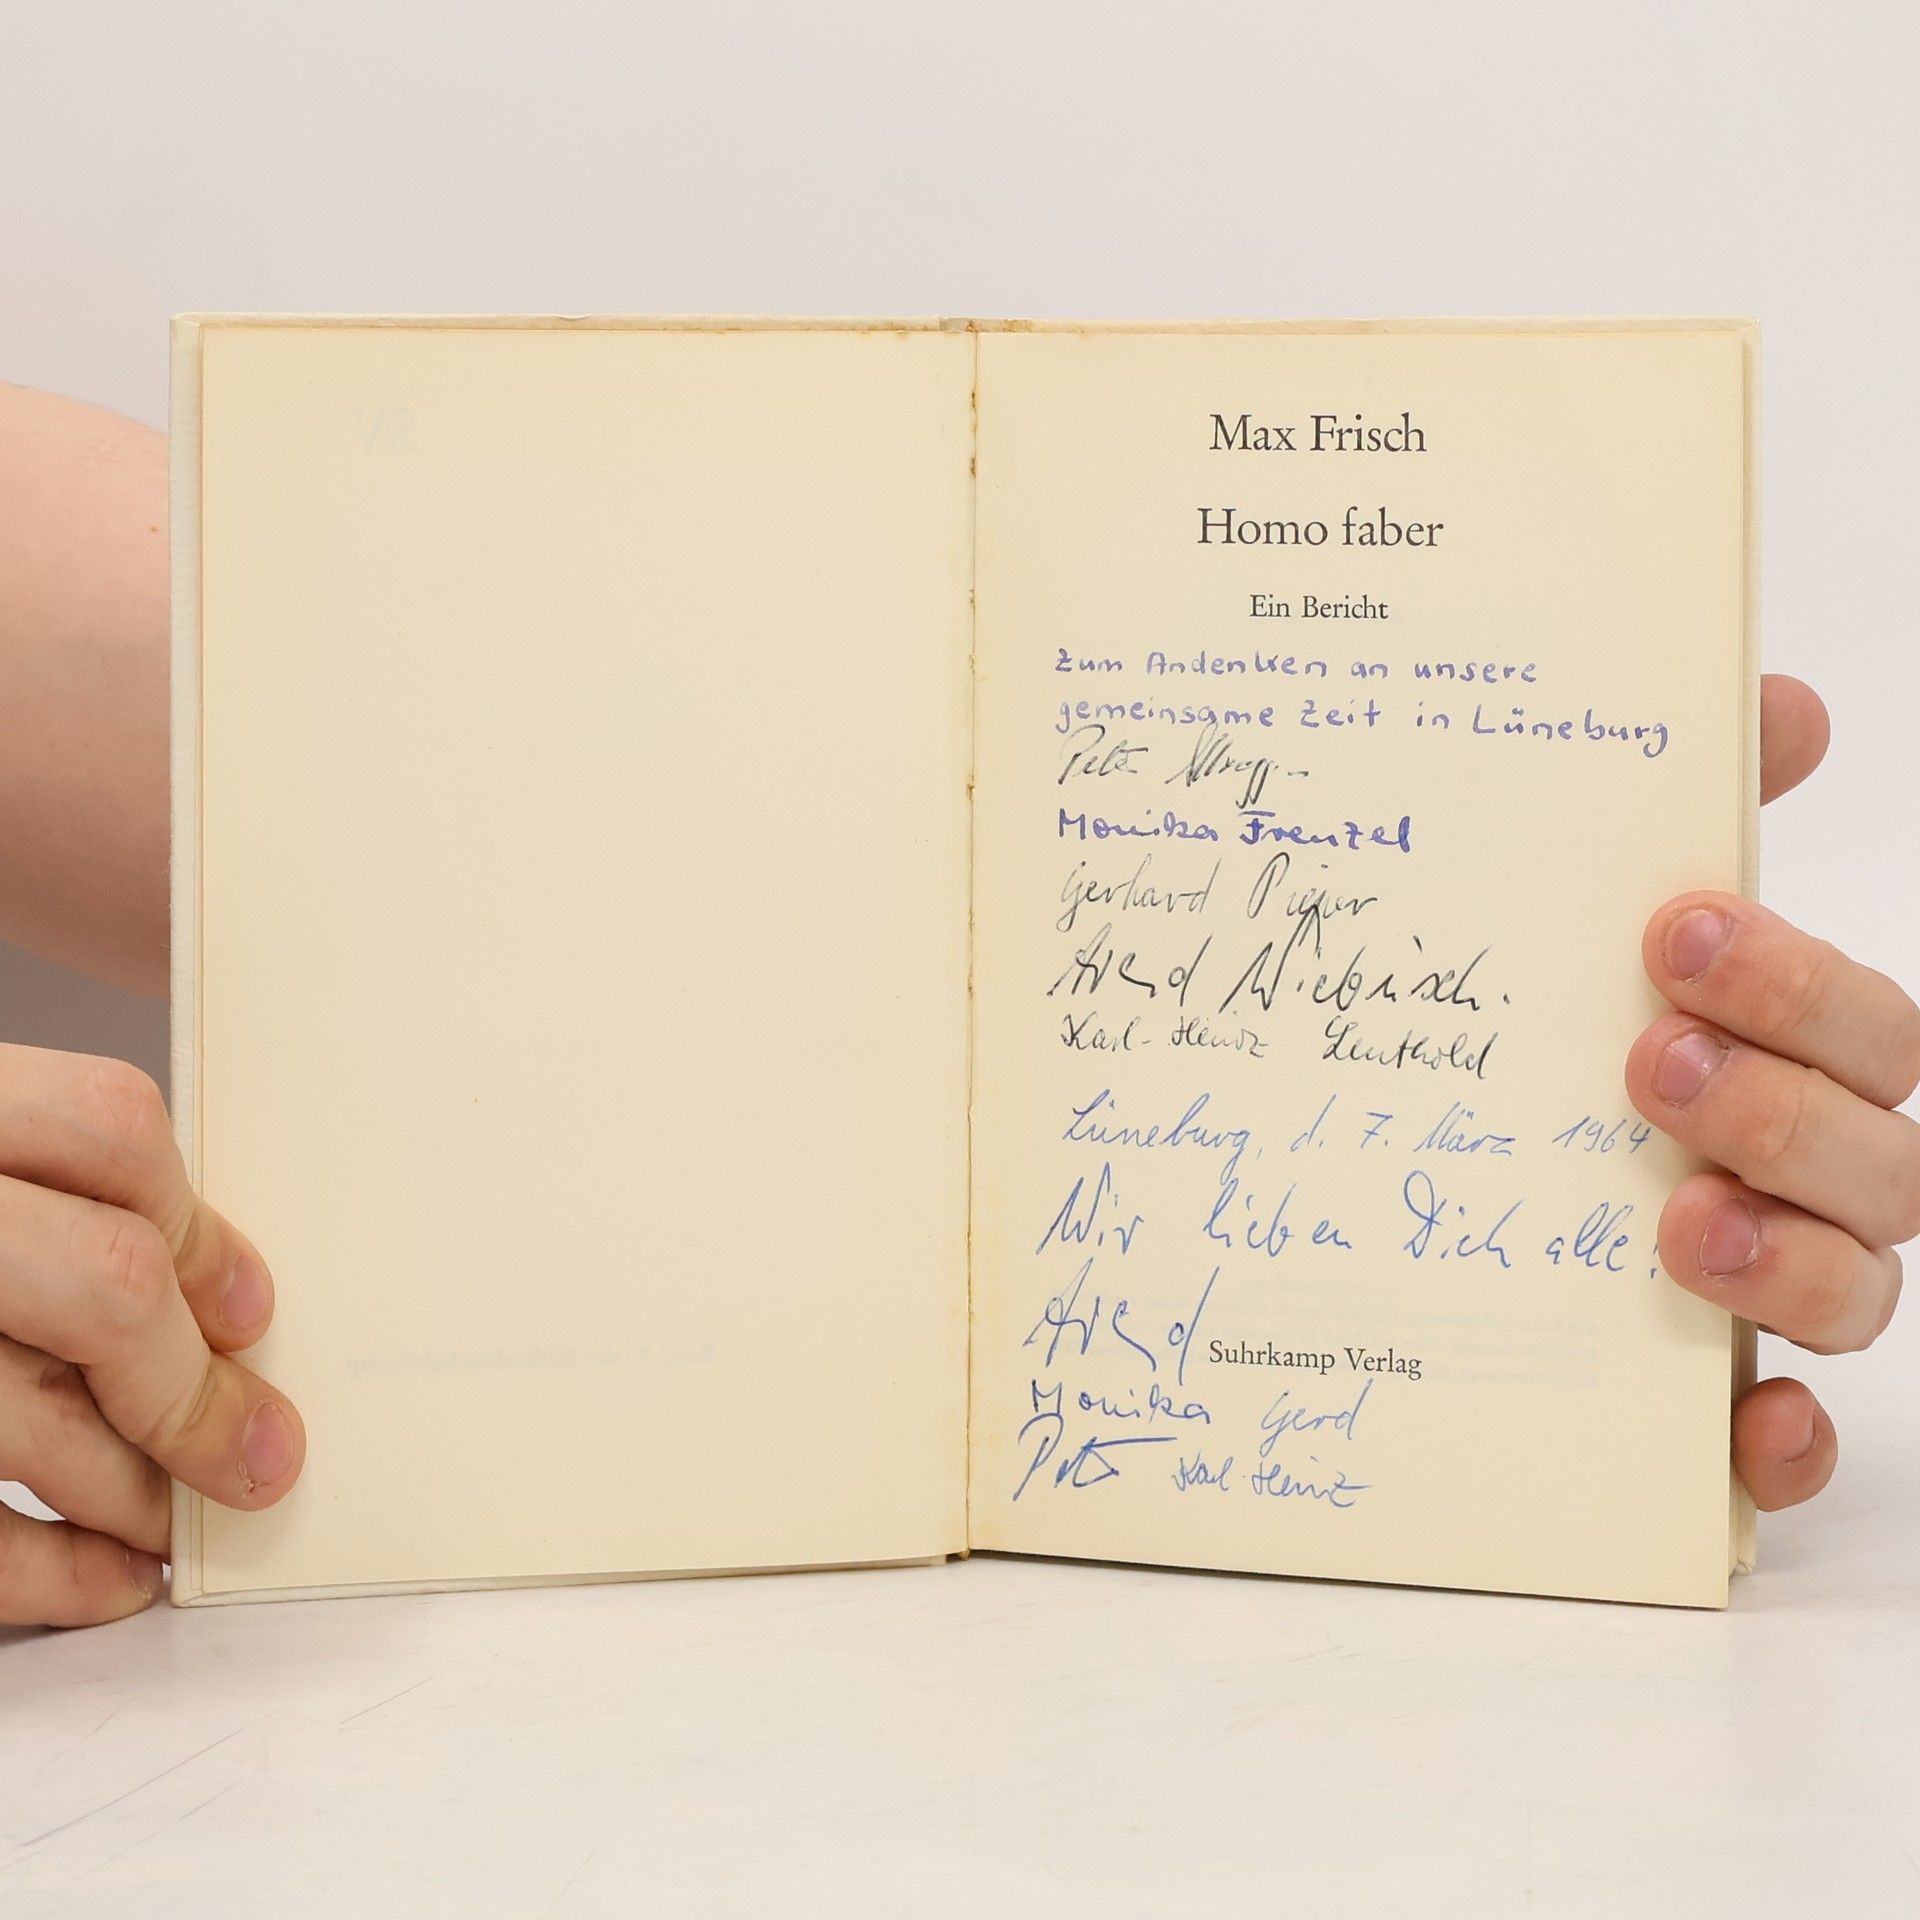 SV
Max Frisch
Homo faber
Ein Bericht
Zum Andenken an unsere
gemeinsame Zeit in Lüneburg
Peter
Monika Frenzel
Gerhard Pieper
Arend Wiebusch.
Karl-Heinz Leuthold
Lüneburg, d. 7. März 1964
Wir lieben Dich alle!
Arend
Suhrkamp Verlag
Monika Gerd
Peter Karl-Heinz